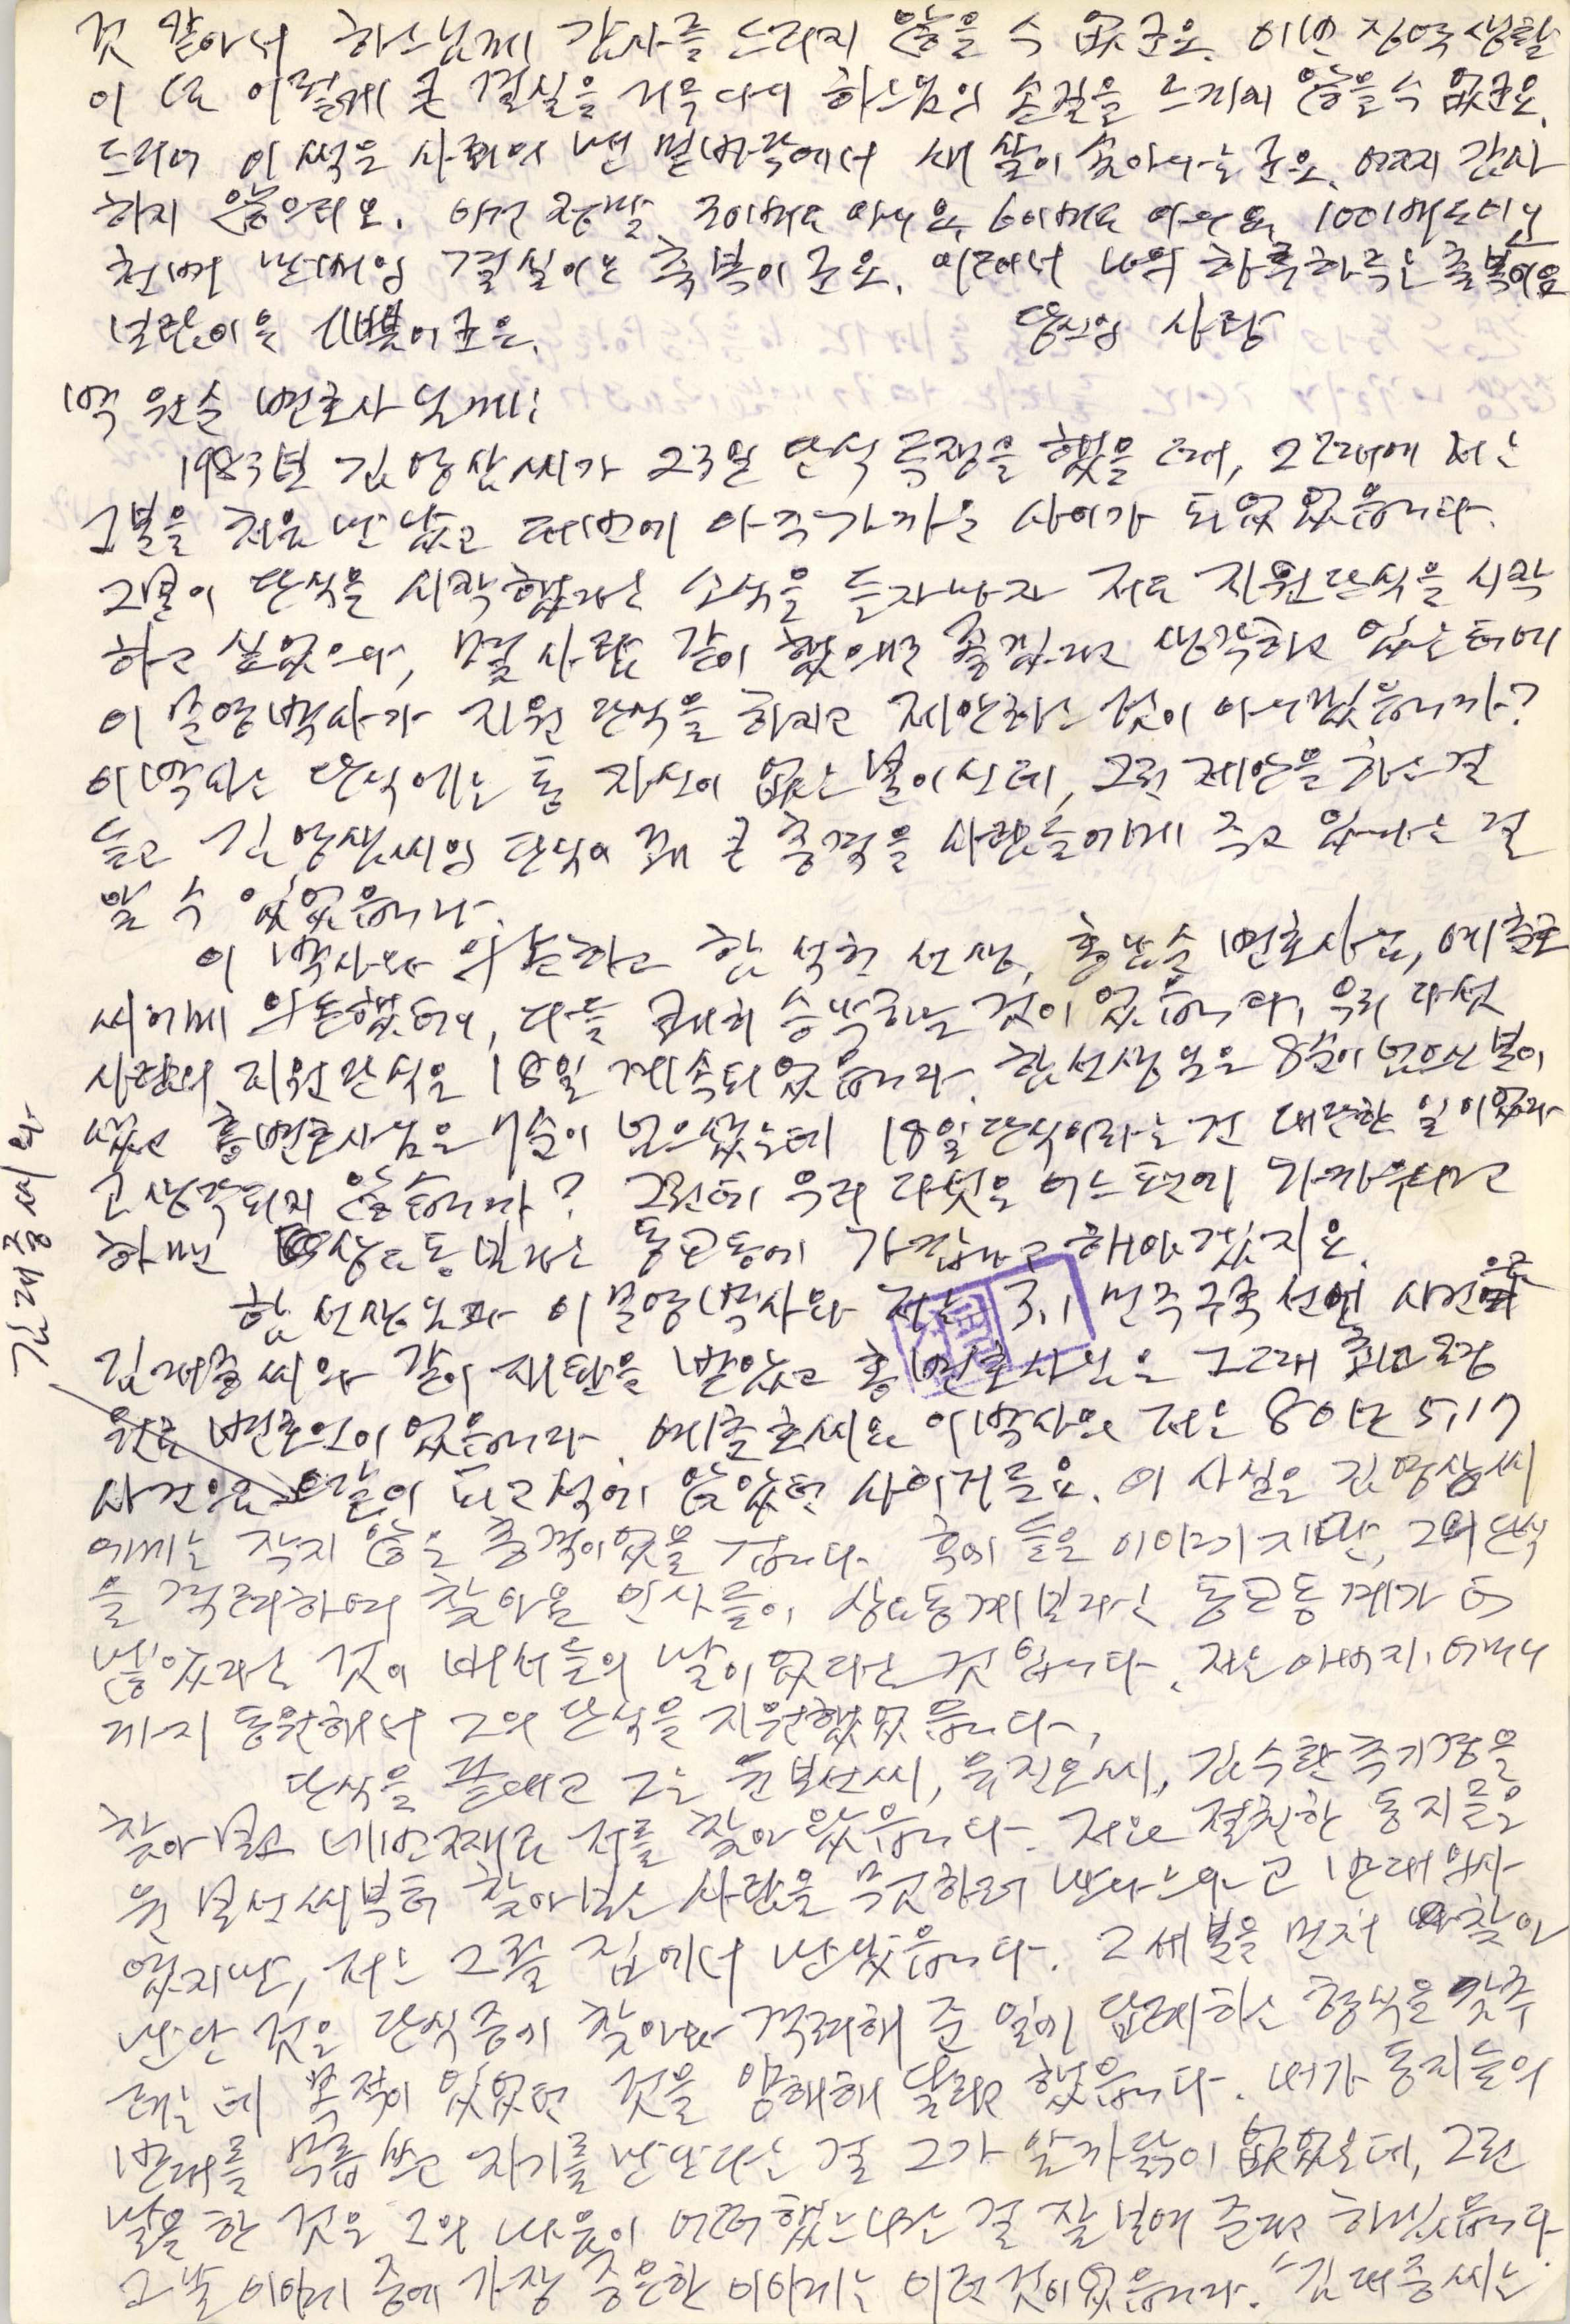 것 같아서 하느님께 감사를 드리지 않을 수 없군요. 이번 징역 생활
이 또 이렇게 큰 결실을 거두다니 하느님의 손길을 느끼지 않을 수 없군요.
드디어 이 썩은 사회의 밑바닥에서 새 싹이 솟아나는군요. 어찌 감사
하지 않으리오. 이건 정말 30배도 아니요, 60배도 아니요, 100배도 아닌
천배 만배의 결실이는 축복이군요.
당신의 사랑
변호사님께:
1983년 김영삼씨가 23일 단식 투쟁을 했을 때, 그 때에 저는
그분을 처음 만났고 대번에 아주 가까운 사이가 되었었습니다.
그분이 단식을 시작했다는 소식을 듣자마자 저도 지원단식을 시작
하고 싶었으나, 몇 사람 같이 했으면 좋겠다고 생각하고 있는 터에
이문영 박사가 지원 단식을 하자고 제안하는 것이 아니겠습니까?
이 박사는 단식에는 통 자신이 없는 분이신데, 그런 제안을 하는 걸
듣고 김영삼씨의 단식이 꽤 큰 충격을 사람들에게 주고 있다는 걸
알 수 있었습니다.
이 박사와 의논하고 함석헌 선생, 홍남순 변호사님, 예춘호
씨에게 의논했더니, 다들 쾌히 승낙하는 것이었습니다. 우리 다섯
사람의 지원단식은 18일 계속되었습니다. 함선생님은 8순이 넘으신 분이
셨고 홍변호사님은 7순이 넘으셨는데 18일 단식이라는 건 대단한 일이었다
고 생각되지 않습니까? 그런데 우리 다섯은 어느 편에 가까우냐고
하면 상도동보다는 동교동에 가깝다고 해야겠지요.
함 선생님과 이문영 박사와 저는 3.1 민주구국선언 사건으로
김대중씨와 같이 재판을 받았고 홍변호사님은 그 때
변호인이었습니다. 예춘호씨와 이박사와 저는 80년 5.17
사건으로 같이 피고석에 앉았던 사이거든요. 이 사실은 김영삼씨
에게는 작지 않은 충격이었을 겁니다. 후에 들은 이야기지만, 그의 단식
을 격려하며 찾아온 인사들이 상도동계보다는 동교동계가 더
많았다는 것이 비서들의 말이었다는 것입니다. 저는 아버지, 어머니
까지 동원해서 그의 단식을 지원했었습니다.
단식을 끝내고 그는 윤보선씨, 유진오씨, 김수환 추기경을
찾아보고 네번째로 저를 찾아 왔습니다. 저의 절친한 동지들은
윤보선씨부터 찾아보는 사람을 무엇하러 만나느냐고 반대의사
였지만, 저는 그를 집에서 만났습니다. 그 세 분을 먼저 찾아
만난 것은 단식중에 찾아와 격려해 준 일에 답례하는 형식을 갖추
려는 데 목적이 있었던 것을 양해해 달라고 했습니다. 내가 동지들의
반대를 무릅쓰고 자기를 만난다는 걸 그가 알 까닭이 없었을텐데, 그런
말을 한 것은 그의 마음이 어떠했느냐는 걸 잘 보여 준다고 하겠습니다.
그날 이야기 중에 가장 중요한 이야기는 이런 것이었습니다. "김대중씨는
김대중씨와